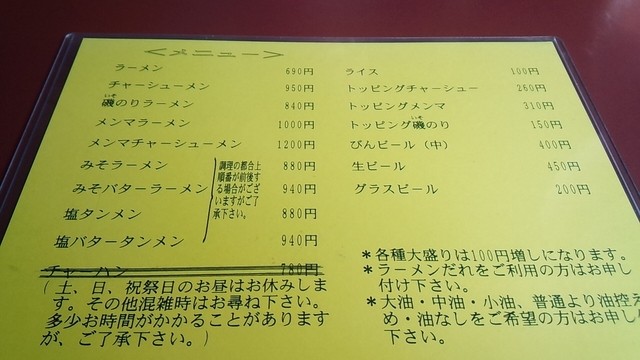 ＜メニュー＞
ラーメン 690円
チャーシューメン 950円
いそ
磯のりラーメン 840円
メンマラーメン 1000円
メンマチャーシューメン 1200円
みそラーメン 880円
みそバターラーメン 940円
塩タンメン 880円
塩バタータンメン 940円
調理の都合上
順番が前後す
る場合がござ
いますがご了
承下さい。
チャーハン 780円
(土、日、祝祭日のお昼はお休みしま
す。その他混雑時はお尋ね下さい。
多少お時間がかかることがあります
が、ご了承下さい。)
ライス 100円
トッピングチャーシュー 260円
トッピングメンマ 310円
いそ
トッピング磯のり 150円
びんビール（中） 400円
生ビール 450円
グラスビール 200円
＊各種大盛りは100円増しになります。
＊ラーメンだれをご利用の方はお申し
付け下さい。
＊大油・中油・小油、普通より油控え
め・油なしをご希望の方はお申し
下さい。